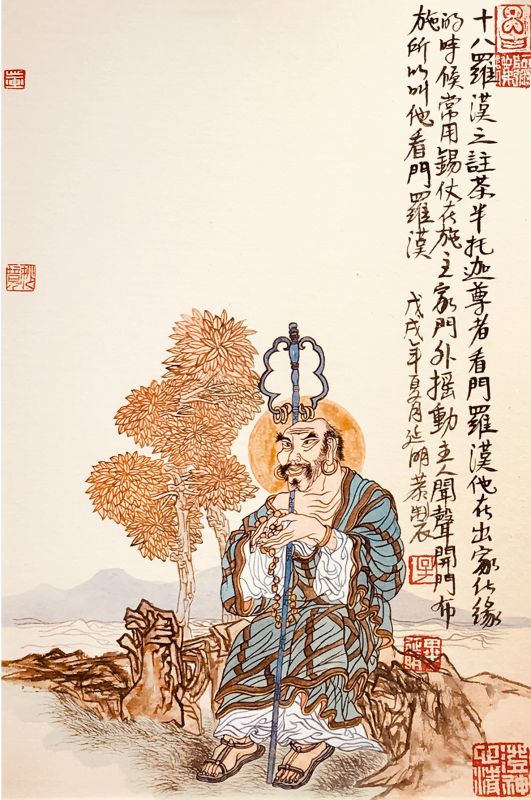 十八羅漢之註茶半托迦尊者看門羅漢他在出家化緣
的時候常用錫杖在施主家門外搖動主人聞聲開門布
施所以叫他看門羅漢
戊戌年夏月延明恭製